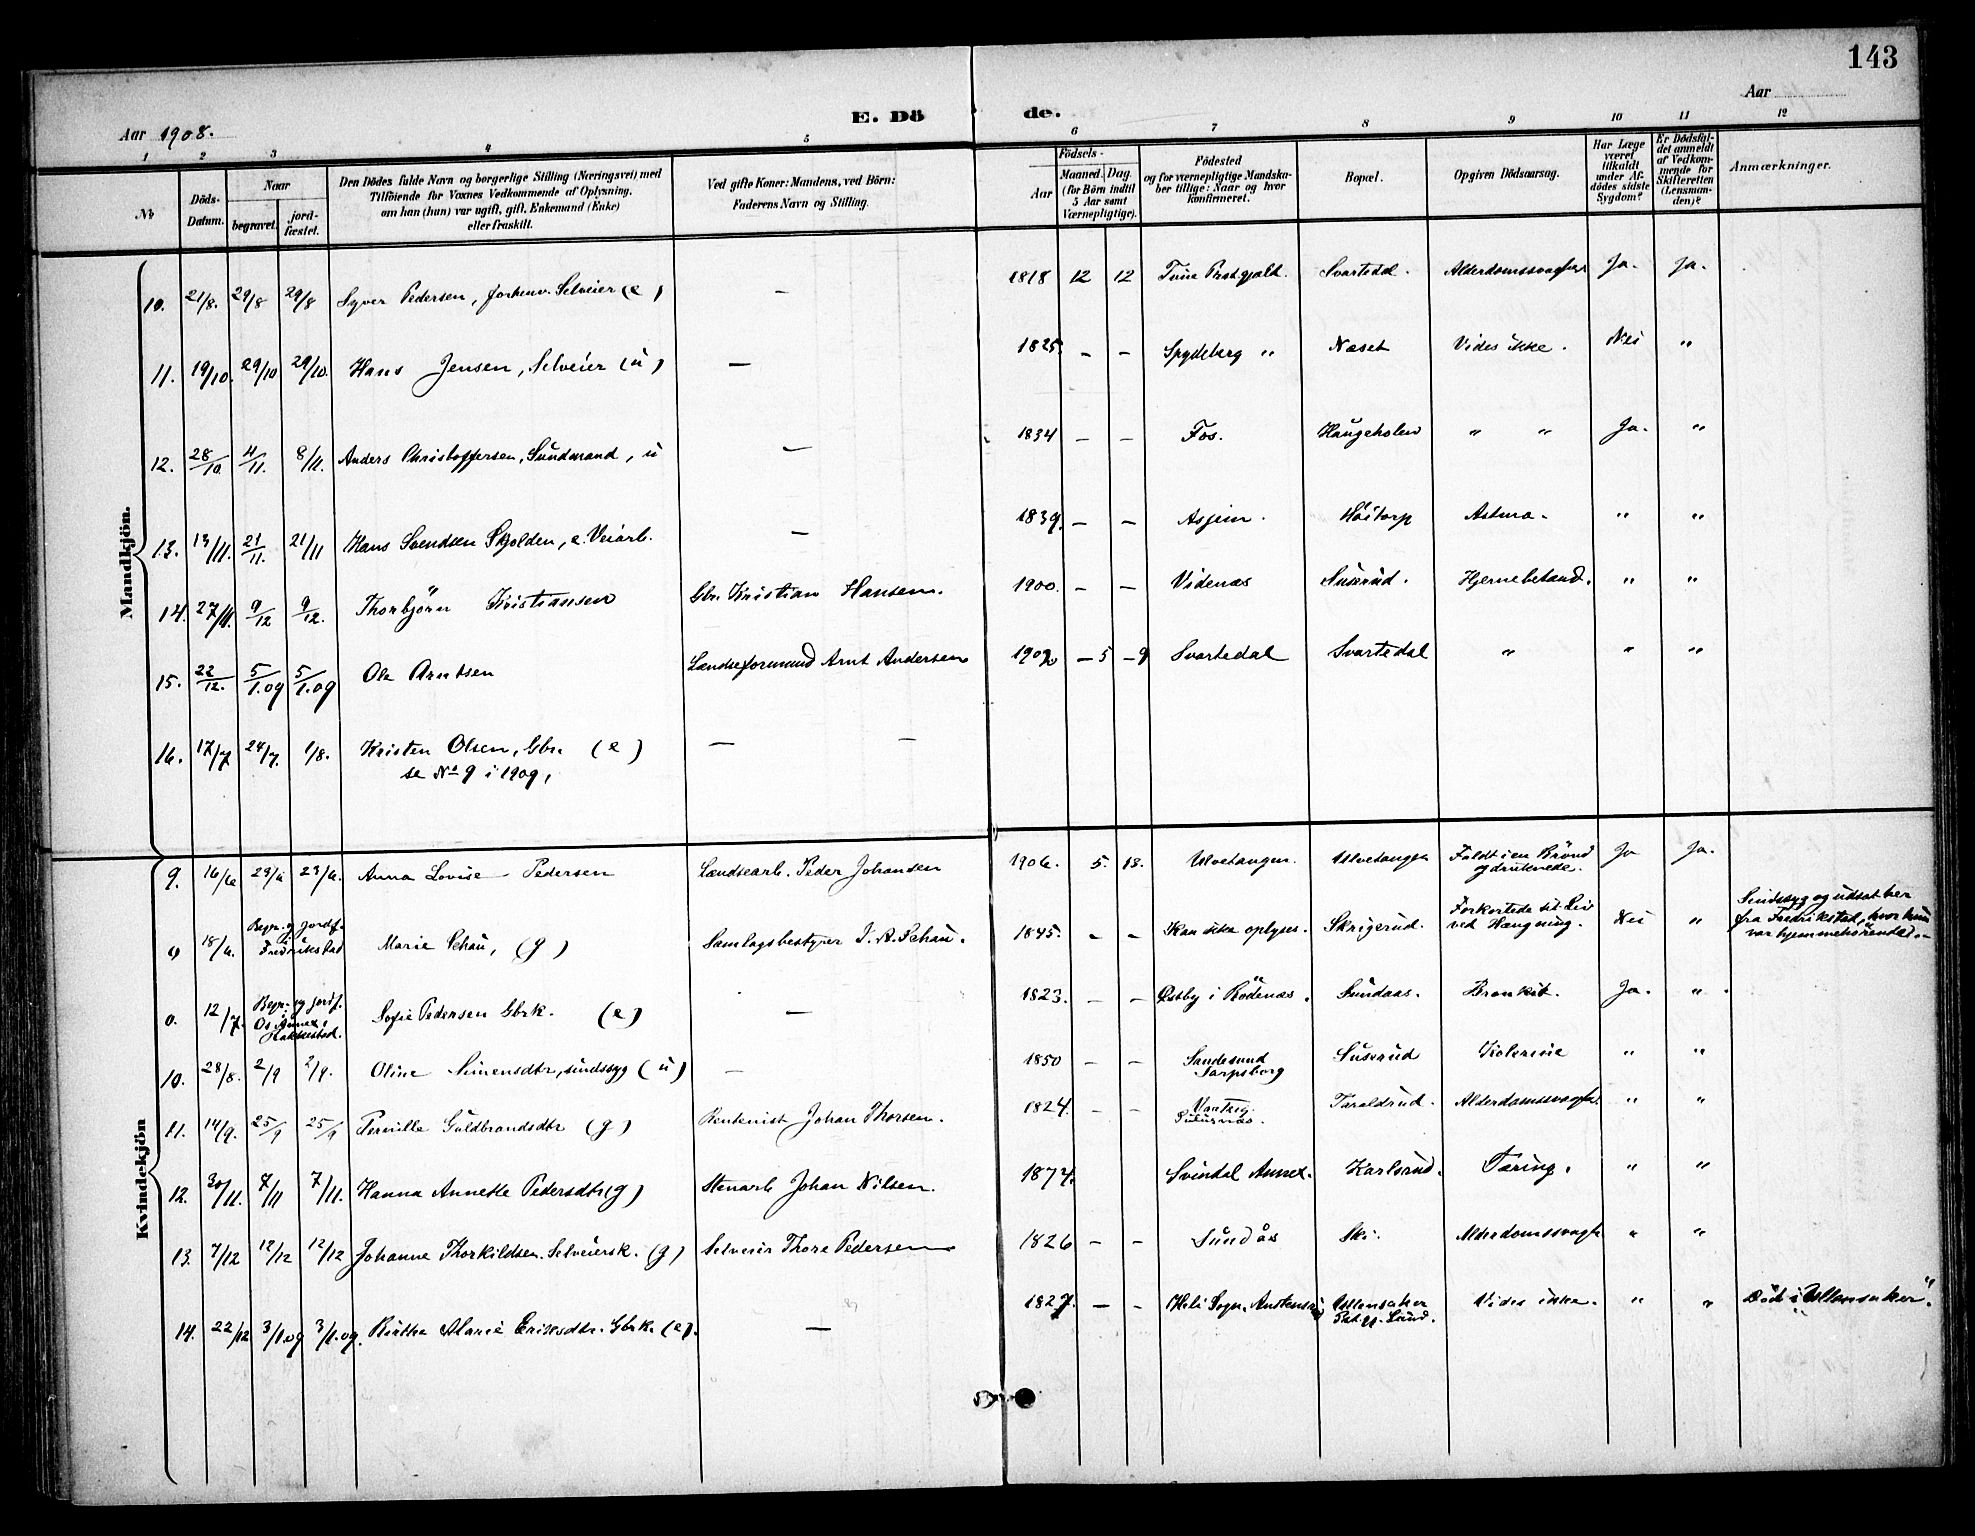 143
Aar
Aar 1908.
E. Dö de.
1 2 3 4 5 6 7 8 9 10 11 12
No
Döds-Datum.
Naar
begravet.
jord-fæstet.
Den Dödes fulde Navn og borgerlige Stilling (Næringsvei) med
Tilföiende for Voxnes Vedkommende af Oplysning,
om han (hun) var ugift, gift, Enkemand (Enke)
eller fraskilt.
Ved gifte Koner: Mandens, ved Börn:
Faderens Navn og Stilling.
Födsels-
Aar
Maaned. Dag.
(for Börn indtil
5 Aar samt
Værnepligtige).
Födested
og for værnepligtige Mandska-
ber tillige: Naar og hvor
konfirmeret.
Bopæl.
Opgiven Dödsaarsag.
Har Læge
været
tilkaldt
under Af-
dödes sidste
Sygdom?
Er Dödsfal-
det anmeldt
af Vedkom-
mende for
Skifteretten
(Lensman-
den)?
Anmærkninger.
Mandkjön.
10. 21/8. 29/8 29/8 Syver Pedersen, Selveier (e) — 1818 12 12 Tune Svartedal. Ja. Ja.
11. 19/10. 29/10 29/10. Hans Jensen, Selveier (u) — 1825. — — Spydeberg " Næset Vides ikke. Nei "
12. 28/10. 4/11. 8/11. Anders Christoffersen, u — 1834 — — Haugeholen " " Ja. "
13. 13/11. 21/11. 21/11 Hans Svendsen Skjolden, e. Veiarb. — 1839. — — Asjem. Höitorp Astma. " "
14. 27/11. 9/12 9/12. Thorbjörn Kristiansen Gbr. Kristian Hansen. 1900. — — Videnæs Susrud. Hjernebetænd. " "
15. 22/12. 5/1.09 5/1.09 Ole Arntsen Lændseformand Arnt Andersen — 5 — 9 Svartedal Svartedal " " "
16. 17/7 24/7. 1/8. Kristen Olsen, Gbr. (e) — —
se No 9 i 1909.
Kvindekjön
9. 16/6 23/6 23/6. Anna Lovise Pedersen Lændsearb. Peder Johansen 1906. 5. 13. Ulvetangen. Ulvetangen Faldt i en Brönd Ja Ja.
og druknede.
18/6. Begr. og jordf. Fredrikstad Marie Schau, (g) Samlagsbestyrer Schau. 1845. — — Kan ikke oplyses. Skrigerud. Forkortede sit Liv ved Hængning. Nei " Sindssyg og udsat her
fra Fredrikstad, hvor hun
var hjemmehörende.
12/7. Begr. og jordf. Os Annex i Rakkestad. Sofie Pedersen Gbrk. (e) — 1823. — — Østby i Rödenæs. Sundaas. Bronkit. Ja. "
10. 28/8. 2/9 2/9. Oline Simensdtr, sindssyg (u) — 1850 — — Sandesund Sarpsborg Susrud Kolerine " "
11. 14/9. 25/9 25/9 Pernille Guldbrandsdtr (g) Rentenist Johan Thorsen. 1824. — — Taraldrud. " "
12. 30/11. 7/11 7/11. Hanna Annette Pedersdtr (g) Stenarb Johan Nilsen. Svindal Annex. Karlsrud. Tæring. " "
13. 7/12 12/12 12/12 Johanne Thorkildsen. Selveiersk. (g) Selveier Thore Pedersen 1826 — — Sundås Ski. " "
14. 22/12 3/1.09 3/1.09. Marie Eriksdtr. Gbrk. (e). — 1827. — — Heli Sogn. Ullensaker Vides ikke. " " Död i "Ullensaker".